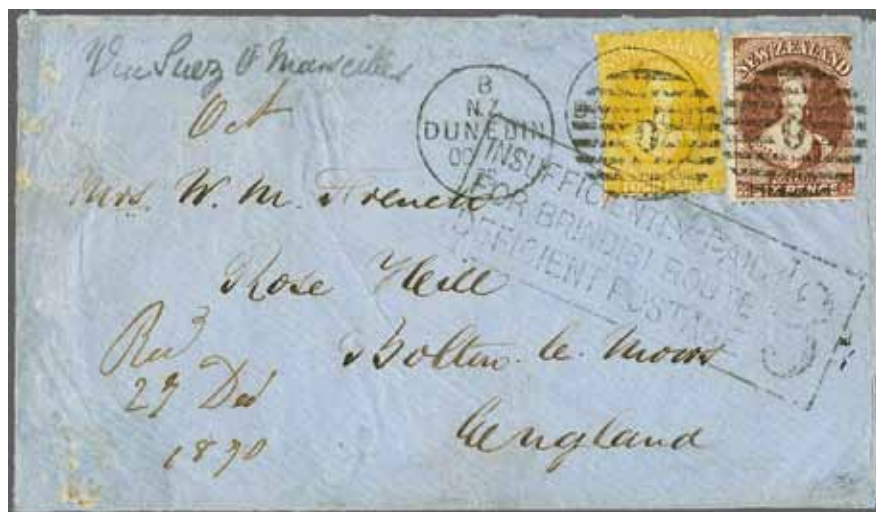 Via Suez & Marseilles
Oct
B
N.Z.
DUNEDIN
OC
NEW ZEALAND
SIX PENCE
INSUFFICIENTLY PREPAID
FOR BRINDISI ROUTE
DEFICIENT POSTAGE
3
Mrs. W. M. French
Rose Hill
Bolton. le. Moors
England
Recd
27 Dec
1870